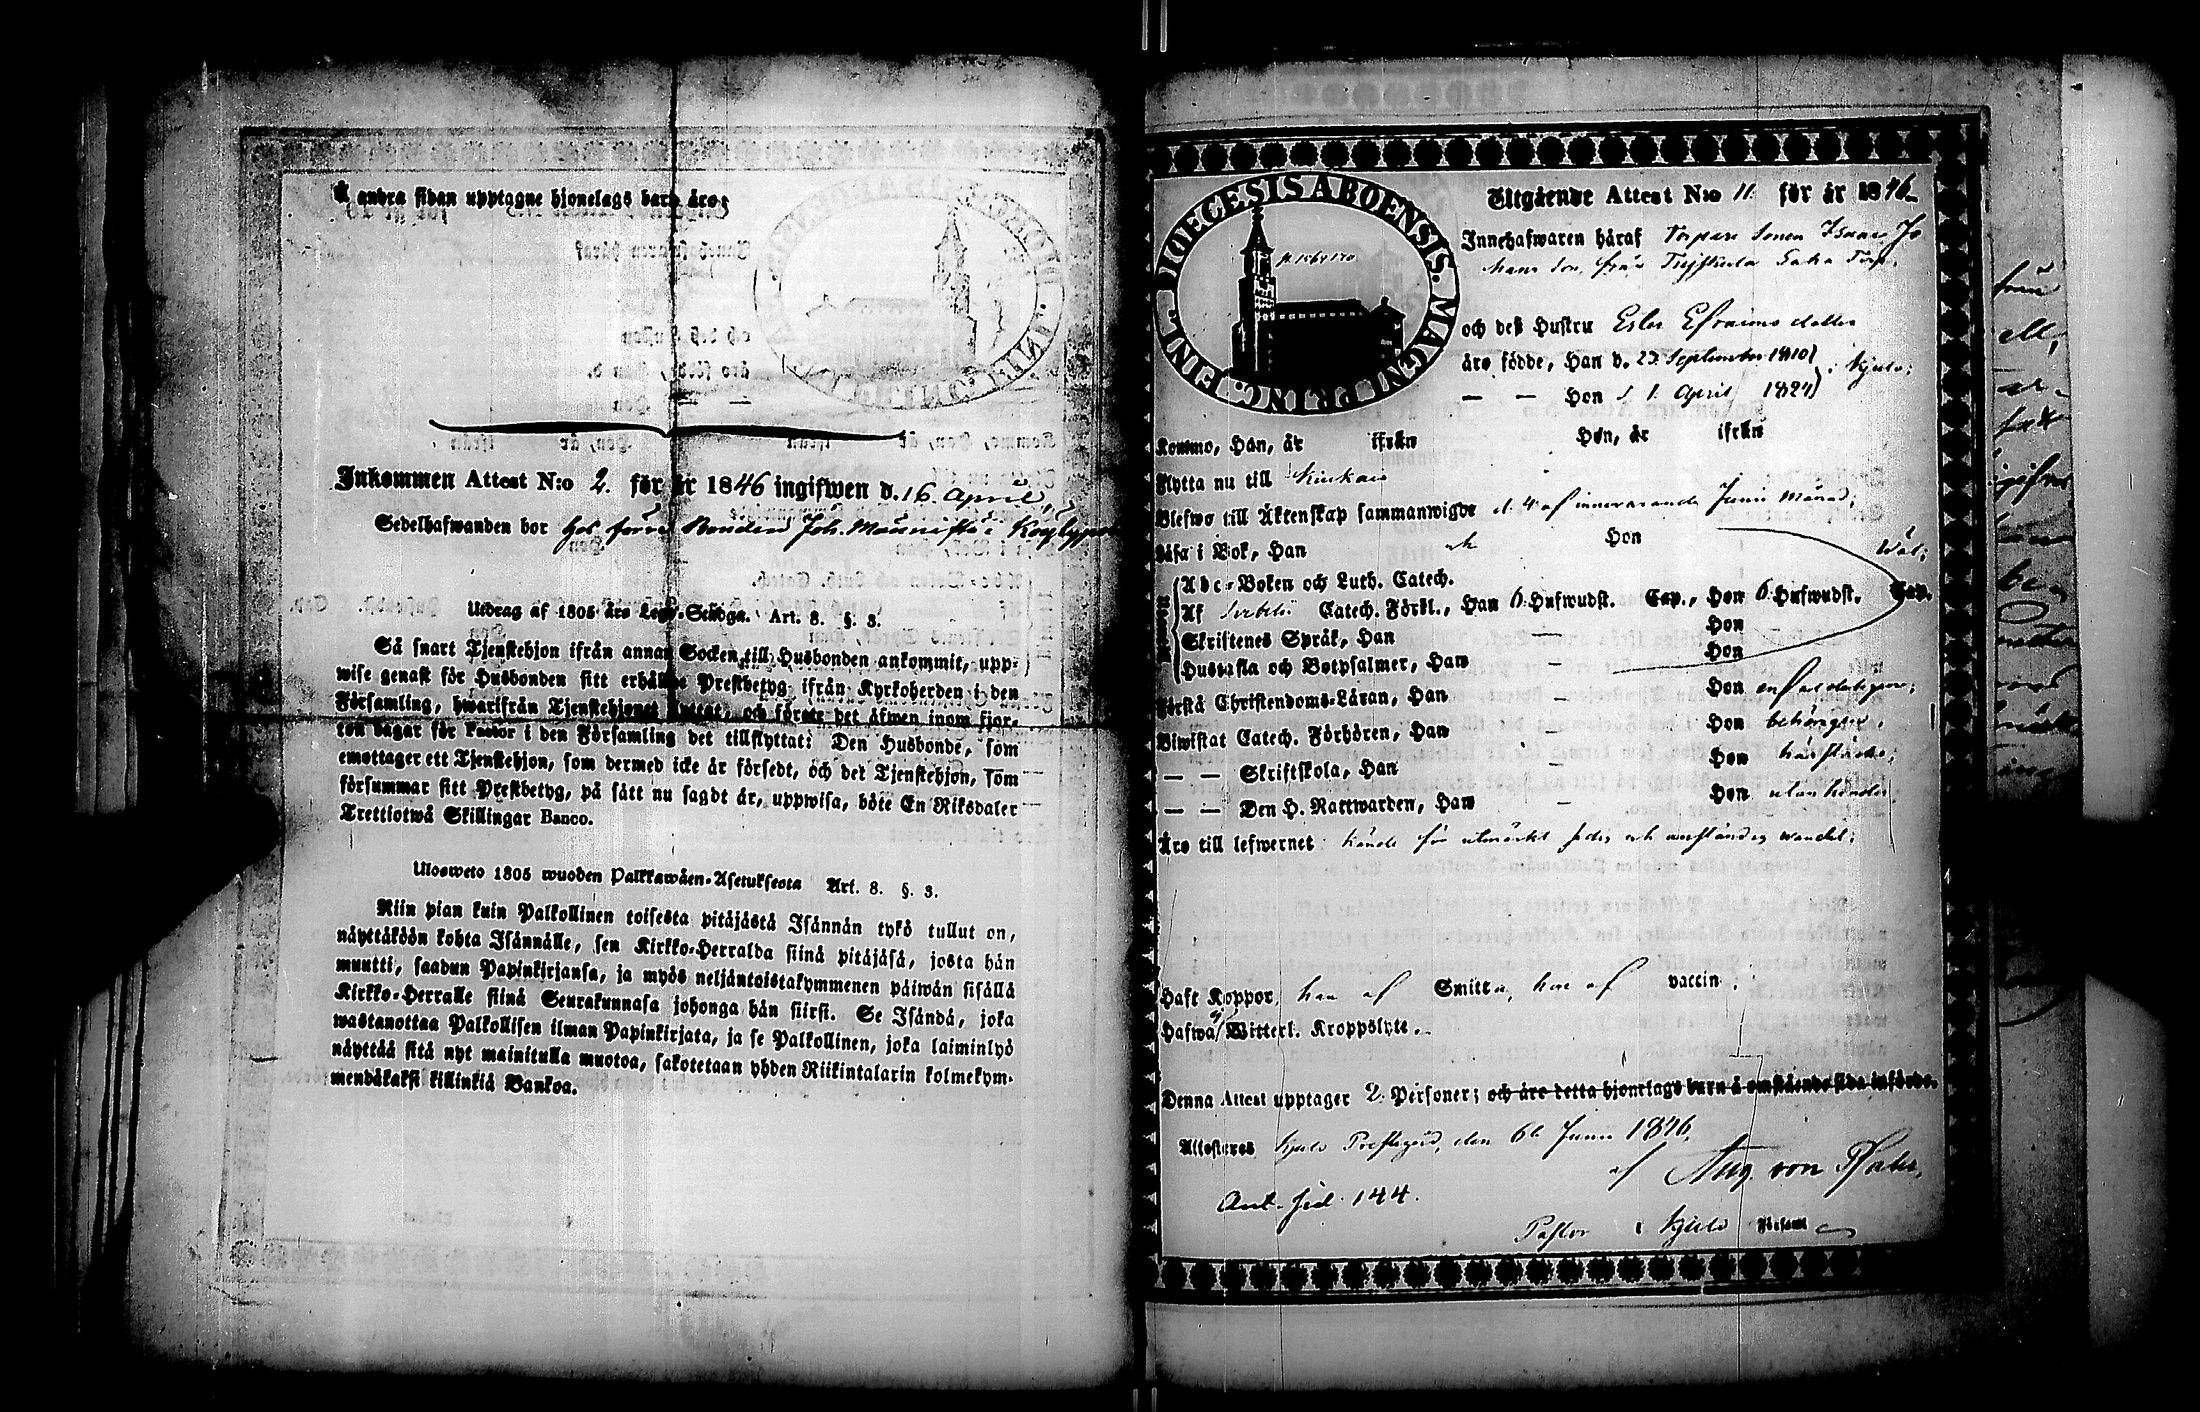 Å andra sidan upptagne hjonelags barn äro:
Inkommen Attest N:o 2. för år 1846 ingifwen d. 16 April,
Sedelhafwanden bor hos förre Bonden Joh.
Utdrag af 1805 års Lego-Stadga. Art. 8. §. 3.
Så snart Tjenstehjon ifrån annan Socken till Husbonden ankommit, upp-
wise genast för Husbonden sitt erhållne Prestbetyg ifrån Kyrkoherden i den
Församling, hwarifrån Tjenstehjonet flyttat, och förete det äfwen inom fjor-
ton dagar för Pastor i den Församling det tillflyttat: Den Husbonde, som
emottager ett Tjenstehjon, som dermed icke är försedt, och det Tjenstehjon, som
försummar sitt Prestbetyg, på sätt nu sagdt är, uppwisa, böte En Riksdaler
Trettiotwå Skillingar Banco.
Ulosweto 1805 wuoden Palkkawäen-Asetuksesta Art. 8. §. 3.
Niin pian kuin Palkollinen toisesta pitäjästä Isännän tykö tullut on,
näyttäköön kohta Isännälle, sen Kirkko-Herralda siinä pitäjäsä, josta hän
muutti, saadun Papinkirjansa, ja myös neljäntoistakymmenen päiwän sisällä
Kirkko-Herralle siinä Seurakunnasa johonga hän siirsi. Se Isändä, joka
wastanottaa Palkollisen ilman Papinkirjata, ja se Palkollinen, joka laiminlyö
näyttää sitä nyt mainitulla muotoa, sakotetaan yhden Riikintalarin kolmekym-
mendäkaksi killinkiä Bankoa.
DIOECESIS ABOENSIS. MAGNI PRINC. FINL.
Utgående Attest N:o 11. för år 1846
Innehafwaren häraf Torpare Sonen Isaac Jo
hans Son från Torp.
och deß Hustru Efraims dotter
äro födde, Han d. 23 September 1810 i Kjulo;
— — Hon d. 1 April 1824
Kommo, Han, år ifrån Hon, år ifrån
Flytta nu till
Blefwo till Äktenskap sammanwigde d. 4 af innewarande Junii Månad;
Läsa i Bok, Han och Hon wäl;
Abc-Boken och Luth. Catech.
Af Catech. Förkl., Han 6 Hufwudst. Cap., Hon 6 Hufwudst. Cap.
Skriftenes Språk, Han — Hon
Hustafla och Botpsalmer, Han — Hon
Förstå Christendoms-Läran, Han — Hon
Biwistat Catech. Förhören, Han — Hon behörigen;
— — Skriftskola, Han — Hon
— — Den H. Nattwarden, Han — Hon utan hinder
Äro till lefwernet kände för utmärkt seder och anständig wandel;
Haft Koppor, han af Smitta, hon af vaccin;
Hafwa ej Witterl. Kroppslyte.
Denna Attest upptager 2 Personer; och äro detta hjonelags barn å omstående sida införde.
Attesteras Kjulo Prestegård, den 6te Junii 1846.
af Aug. von
Ant. sid. 144.
Pastor i Kjulo Församl